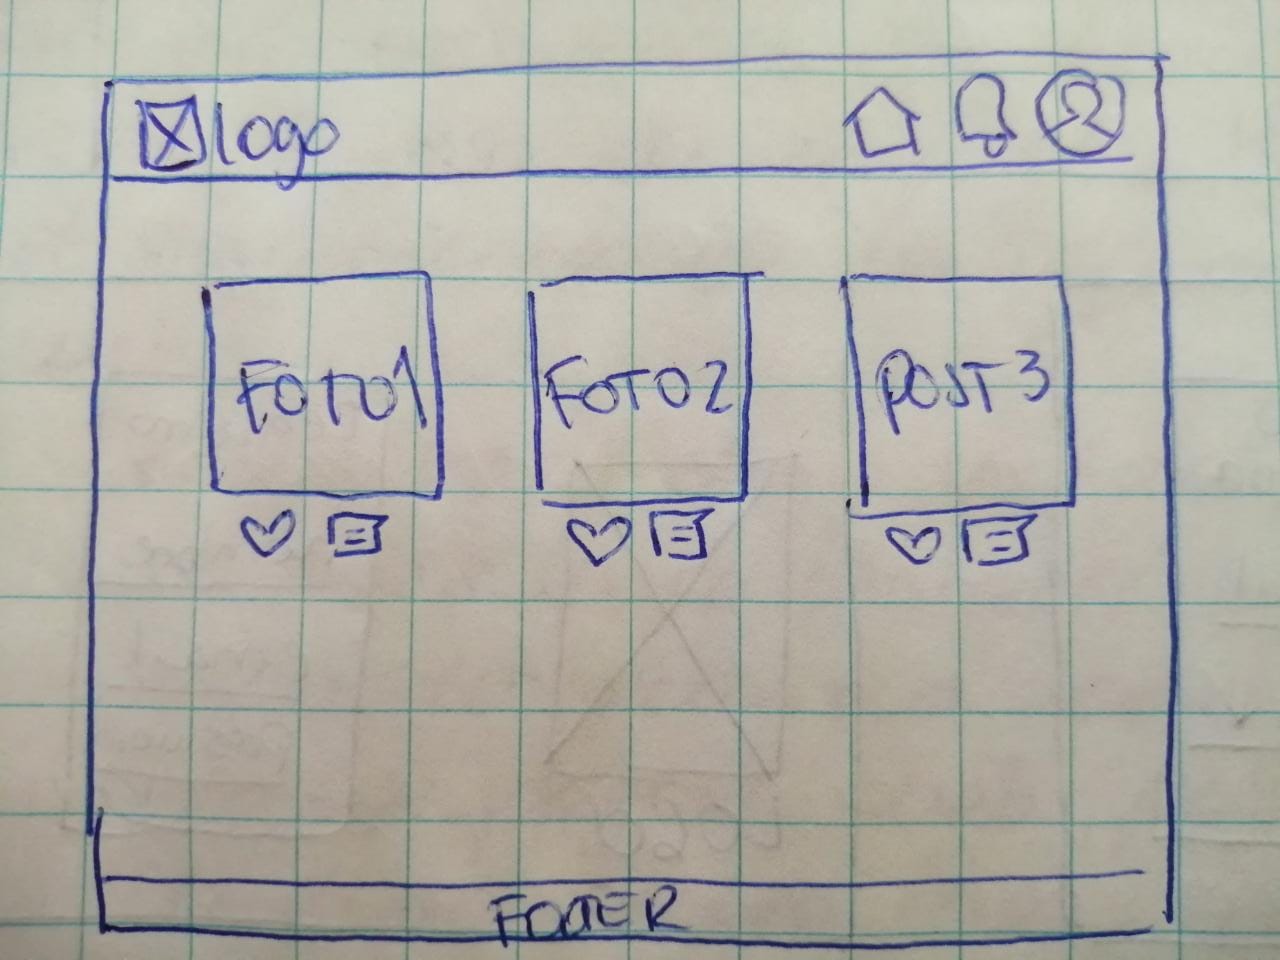 logo
FOTO1
FOTO2
POST3
FOOTER